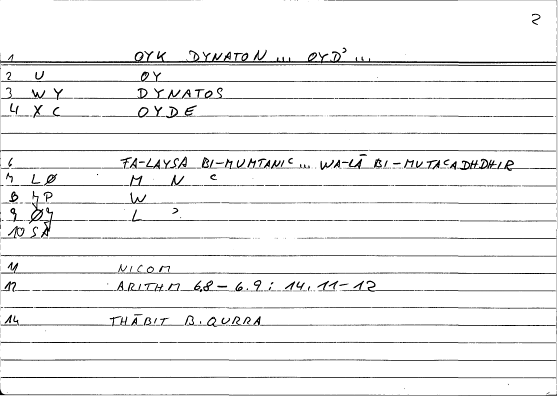 2
1 OYK DYNATON ... OYD' ...
2 U OY
3 WY DYNATOS
4 XC OYDE
6 FA-LAYSA BI-MUMTANIC ... WA-LĀ BI-MUTACADHDHIR
7 LØ M N C
8 W
9 L '
10 SA
11 NICOM
12 ARITHM 6.8 – 6.9 ; 14.11–12
14 THĀBIT B. QURRA